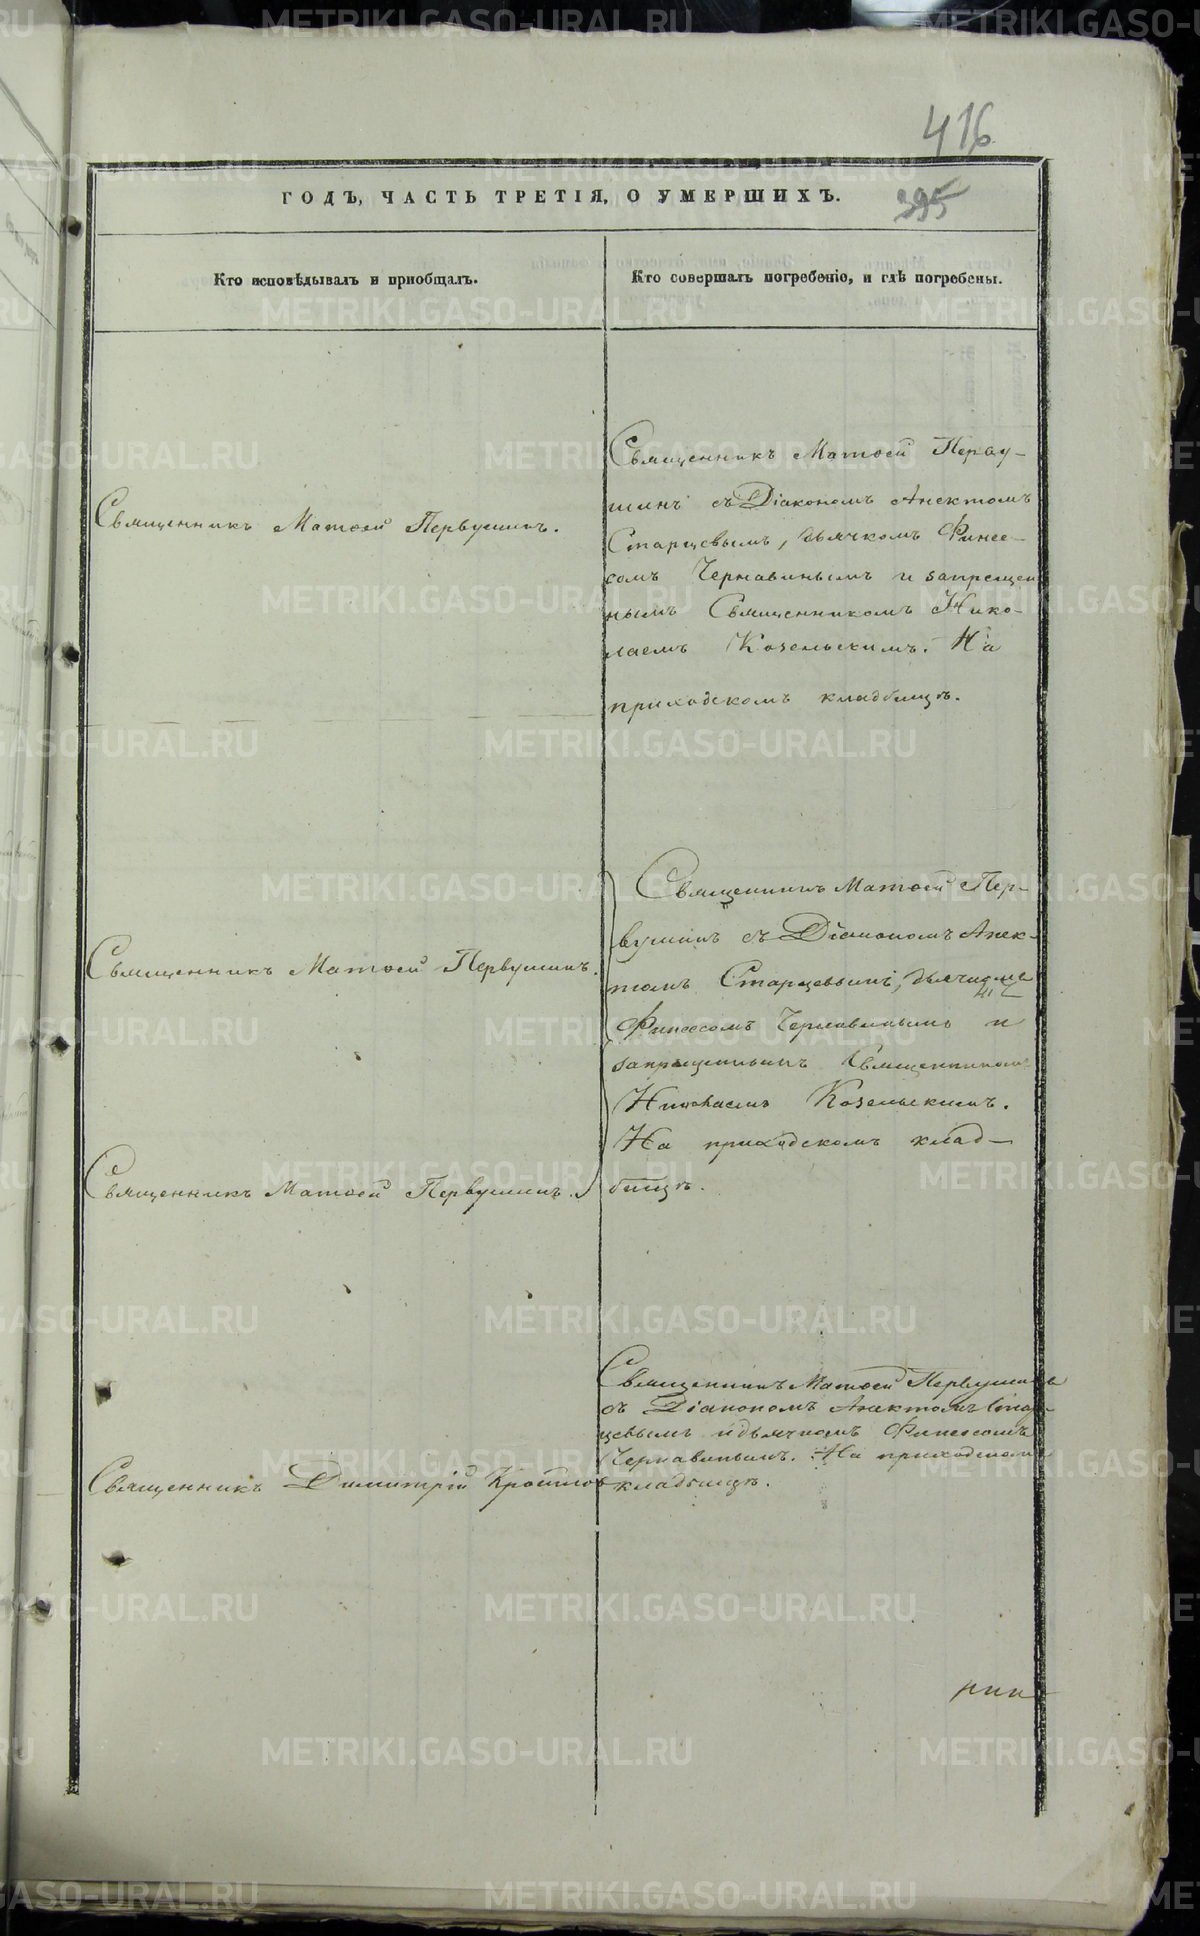 416
ГОДЪ, ЧАСТЬ ТРЕТІЯ, О УМЕРШИХЪ.
395
Кто исповѣдывалъ и пріобщалъ.
Кто совершалъ погребеніе, и гдѣ погребены.
Священникъ Матѳей Первушинъ.
Священникъ Матѳей Перву-
шинъ съ Діакономъ Анектомъ
Старцевымъ, дьячкомъ Финее-
сомъ Чернавинымъ и запрещен
нымъ Священникомъ Нико-
лаемъ Козельскимъ. На
приходскомъ кладбищѣ.
Священникъ Матѳей Первушинъ.
Священникъ Матѳей Первушинъ.
Священникъ Матѳей Пер-
вушинъ съ Діакономъ Анек-
томъ Старцевымъ, дьячкомъ
Финеесомъ Чернавинымъ и
запрещеннымъ Священникомъ
Николаемъ Козельскимъ.
На приходскомъ клад-
бищѣ.
Священникъ Димитрій
Священникъ Матѳей Первушинъ
съ Діакономъ Анектомъ Стар-
цевымъ и дьячкомъ Финеесомъ
Чернавинымъ. На приходскомъ
кладбищѣ.
METRIKI.GASO-URAL.RU